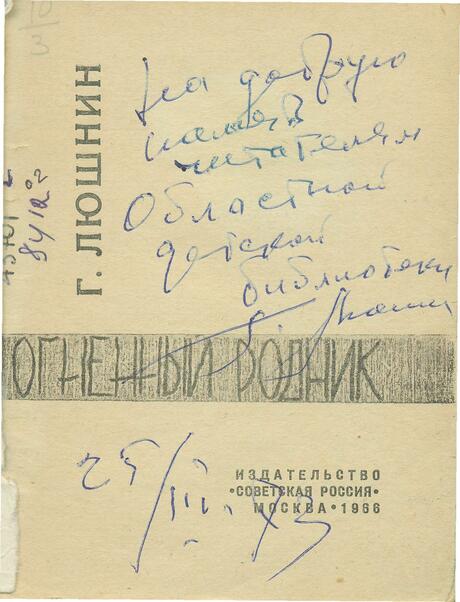 10
3
на добрую
память
читателям
Областной
детской
библиотеки
Г. ЛЮШНИН
ОГНЕННЫЙ РОДНИК
ИЗДАТЕЛЬСТВО
•СОВЕТСКАЯ РОССИЯ•
МОСКВА • 1966